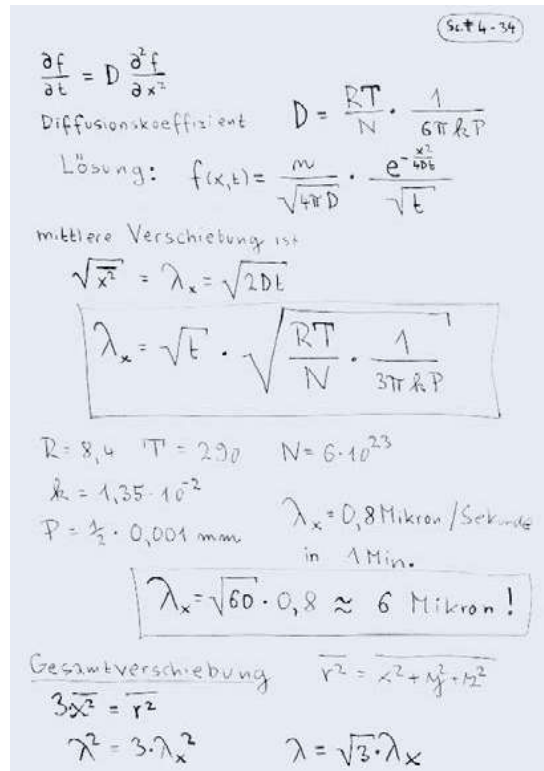 Sc. # 4 - 34
∂f/∂t = D ∂²f/∂x²
Diffusionskoeffizient D = RT/N · 1/(6πkP)
Lösung: f(x,t) = n/√(4πD) · e^(-x²/4Dt)/√t
mittlere Verschiebung ist
√(x̅²̅) = λₓ = √(2Dt)
λₓ = √t · √(RT/N · 1/(3πkP))
R = 8,4 T = 290 N = 6·10²³
k = 1,35·10⁻²
P = ½ · 0,001 mm
λₓ = 0,8 Mikron / Sekunde
in 1 Min.
λₓ = √60 · 0,8 ≈ 6 Mikron !
Gesamtverschiebung r̅²̅ = x̅²̅ ̅+̅ ̅y̅²̅ ̅+̅ ̅z̅²̅
3·x̅²̅ = r̅²̅
λ² = 3·λₓ² λ = √3·λₓ